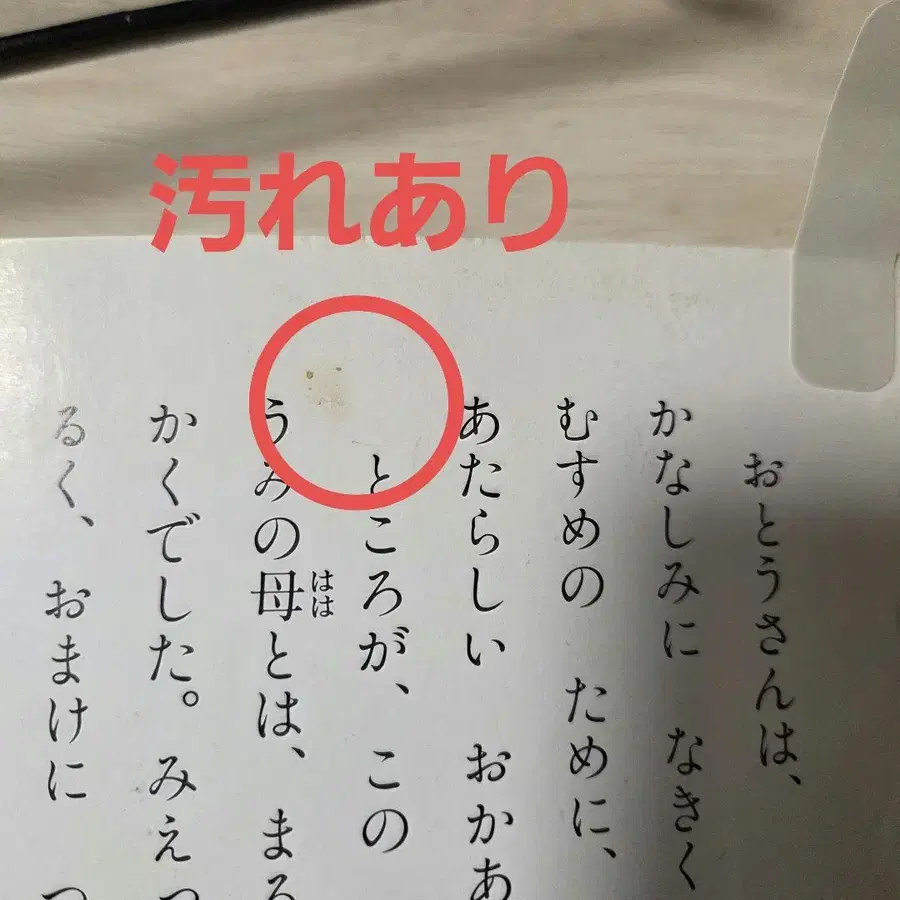 汚れあり
おとうさんは、
かなしみに なきく
むすめの ために、
あたらしい おかあ
ところが、 この
うみの母とは、 まる
はは
かくでした。 みえ
るく、 おまけに